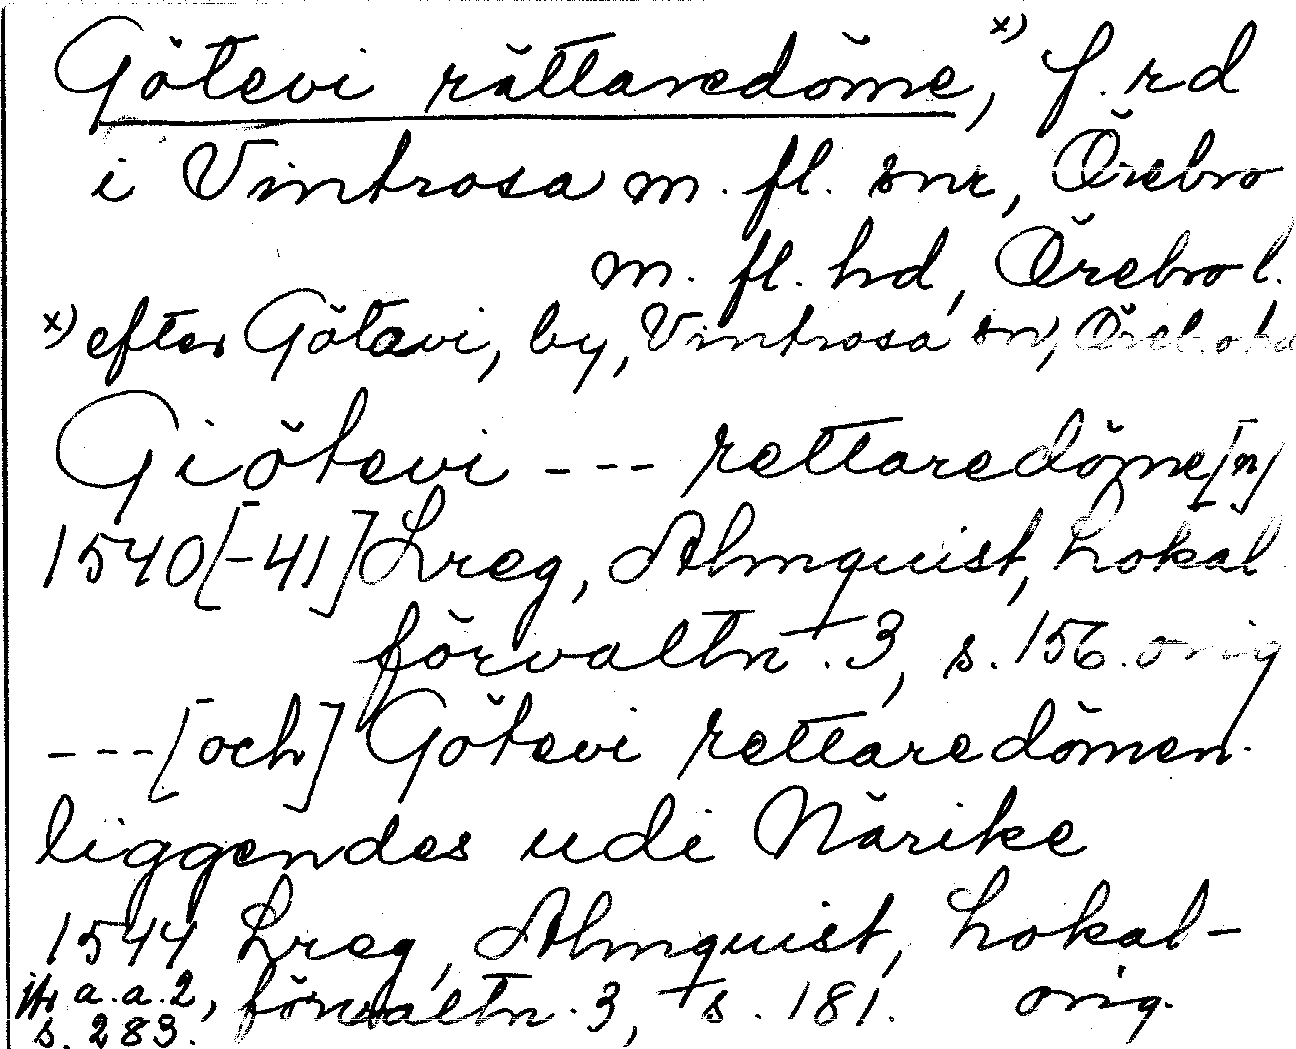 Götevi rättaredöme, x) f. rd
i Vintrosa m. fl. snr, Örebro
m. fl. hd, Örebro l.
x) efter Götavi, by, Vintrosa sn, Örebro hd
Giötevi --- rettaredöme[n]
1540[-41] Lreg, Almquist, Lokal
förvaltn. 3, s. 156. orig
---[och] Götevi rettaredömen
liggendes udi Närike
1544 Lreg, Almquist, Lokal-
förvaltn. 3, s. 181. orig.
jfr a.a. 2,
s. 283.